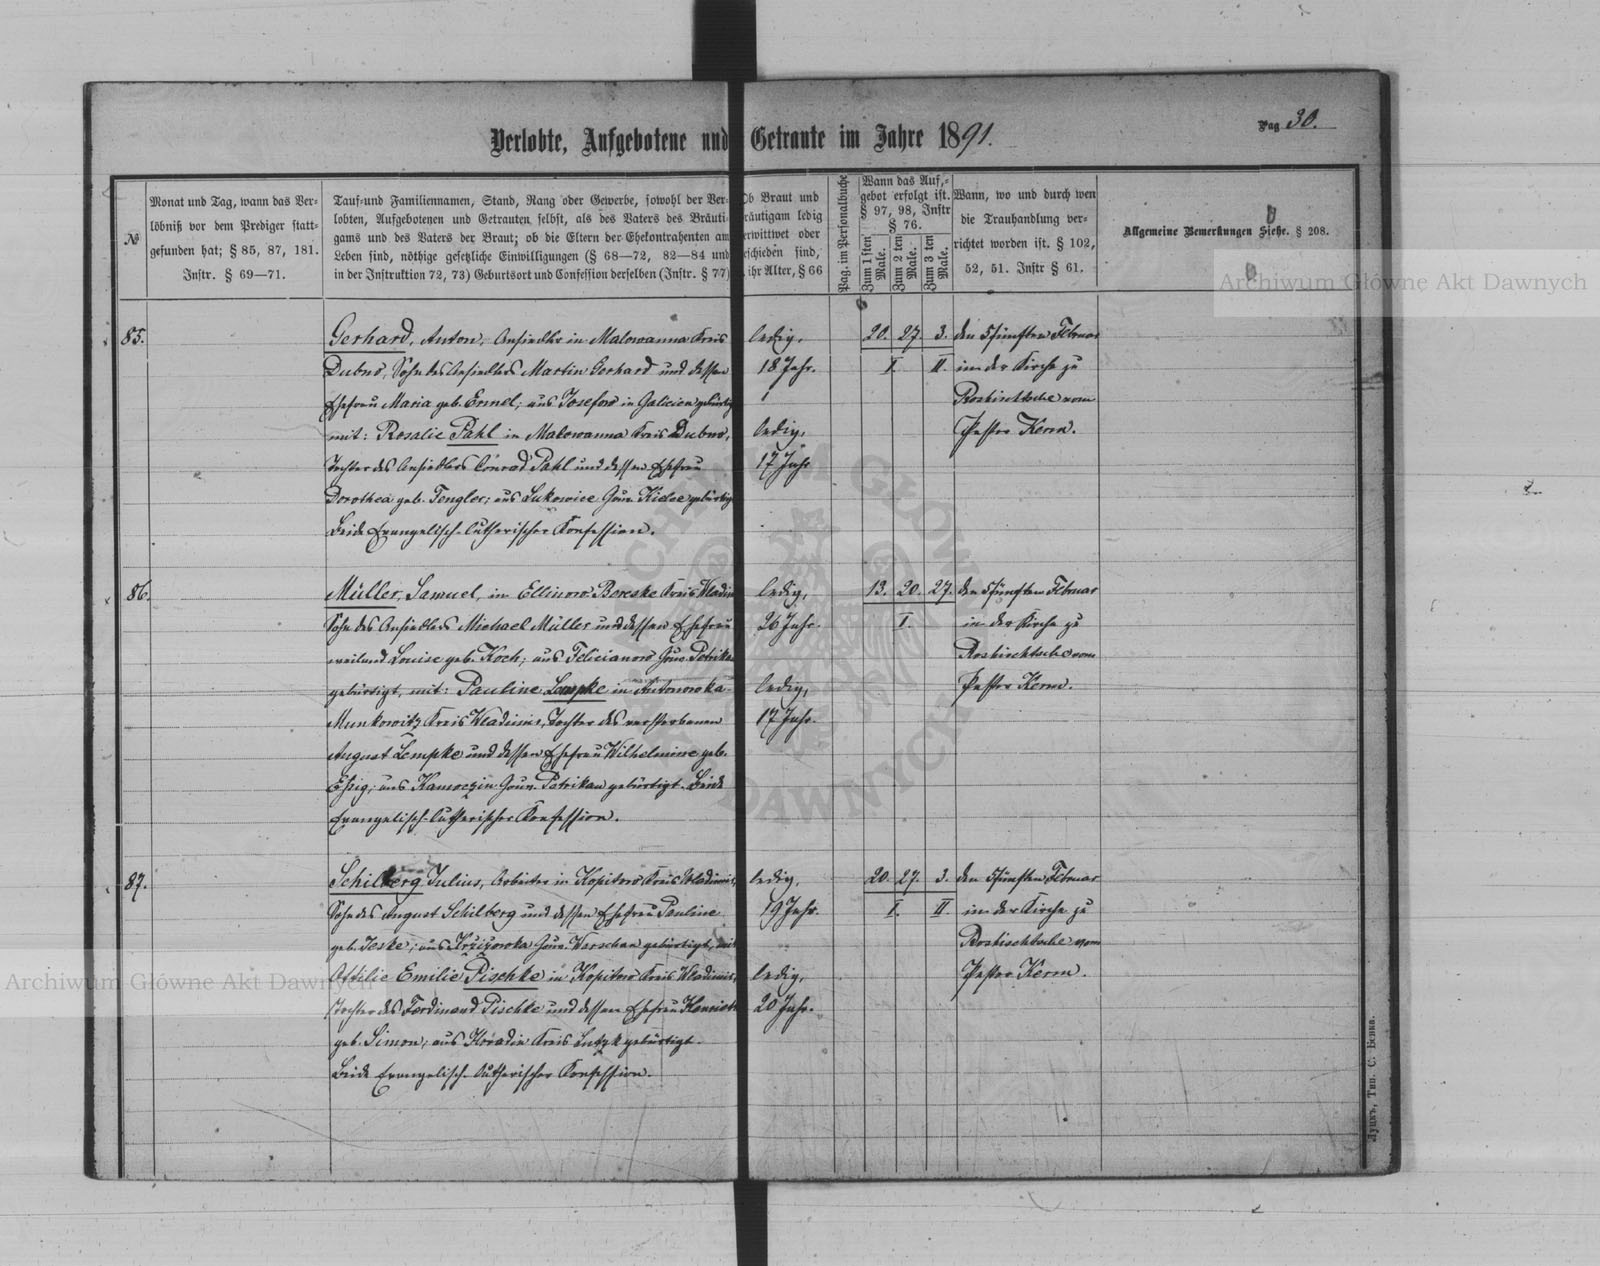 Verlobte, Aufgebotene und Getraute im Jahre 1891.
Pag 30.
№
Monat und Tag, wann das Ver-
löbniß vor dem Prediger statt-
gefunden hat; § 85, 87, 181.
Instr. § 69—71.
Tauf-und Familiennamen, Stand, Rang oder Gewerbe, sowohl der Ver-
lobten, Aufgebotenen und Getrauten selbst, als des Vaters des Bräuti-
gams und des Vaters der Braut; ob die Eltern der Ehekontrahenten am
Leben sind, nöthige gesetzliche Einwilligungen (§ 68—72, 82—84 und
in der Instruktion 72, 73) Geburtsort und Confession derselben (Instr. § 77)
Ob Braut und
räutigam ledig
erwittwet oder
eschieden sind,
ihr Alter, § 66
Pag. in Personalbuche
Wann das Auf,-
gebot erfolgt ist.
§ 97, 98, Instr
§ 76.
Zum 1 sten Male.
Zum 2 ten Male.
Zum 3 ten Male.
Wann, wo und durch wen
die Trauhandlung ver-
richtet worden ist. § 102,
52, 51. Instr § 61.
Allgemeine Bemerkungen Siehe. § 208.
Archiwum Główne Akt Dawnych
85.
Gerhard, Anton, Ansiedler in Malowanna Kreis
Dubno, Sohn des Ansiedlers Martin Gerhard und dessen
Ehefrau Maria geb. Ermel; aus Josefow in Galicien gebürtig
mit: Rosalie Pahl in Malowanna Kreis Dubno,
Tochter des Ansiedlers Conrad Pahl und dessen Ehefrau
Dorothea geb. Tengler; aus Lukowice Gouv. Kielce gebürtig
Beide Evangelisch-lutherischer Konfession.
ledig,
18 Jahr.
ledig,
17 Jahr
20. 27. 3.
I. II.
den 5 fünften Februar
in der Kirche zu
Roschischtsche vom
Pastor Kerm.
86.
Müller, Samuel, in Ellinow Bereske Kreis Wladim
Sohn des Ansiedlers Michael Müller und dessen Ehefrau
weiland Louise geb. Koch; aus Felicianow Gouv. Petrikau
gebürtigt, mit: Pauline Lempke in Antonowka
Munkowitz Kreis Wladimir, Tochter des verstorbenen
August Lempke und dessen Ehefrau Wilhelmine geb.
Essig; aus Kamoczin Gouv. Petrikau gebürtigt. Beide
Evangelisch-lutherischer Konfession.
ledig,
26 Jahr.
ledig,
17 Jahr.
13. 20. 27.
I.
den 5 fünften Februar
in der Kirche zu
Roschischtsche vom
Pastor Kerm.
87.
Schilberg Julius, Arbeiter in Kopitow Kreis Wladimir,
Sohn des August Schilberg und dessen Ehefrau Pauline
geb. Jeske; aus Gouv. Warschau gebürtigt, mit
Ottilie Emilie Pischke in Kopitow Kreis Wladimir,
Tochter des Ferdinand Pischke und dessen Ehefrau Henriette
geb. Simon; aus Horadin Kreis Lutzk gebürtigt.
Beide Evangelisch-lutherischer Konfession.
ledig,
19 Jahr.
ledig,
20 Jahr.
20. 27. 3.
I. II.
den 5 fünften Februar
in der Kirche zu
Roschischtsche vom
Pastor Kerm.
Archiwum Główne Akt Dawnych
Луцкъ, Тип. С. Бенка.
ARCHIWUM GŁÓWNE AKT DAWNYCH